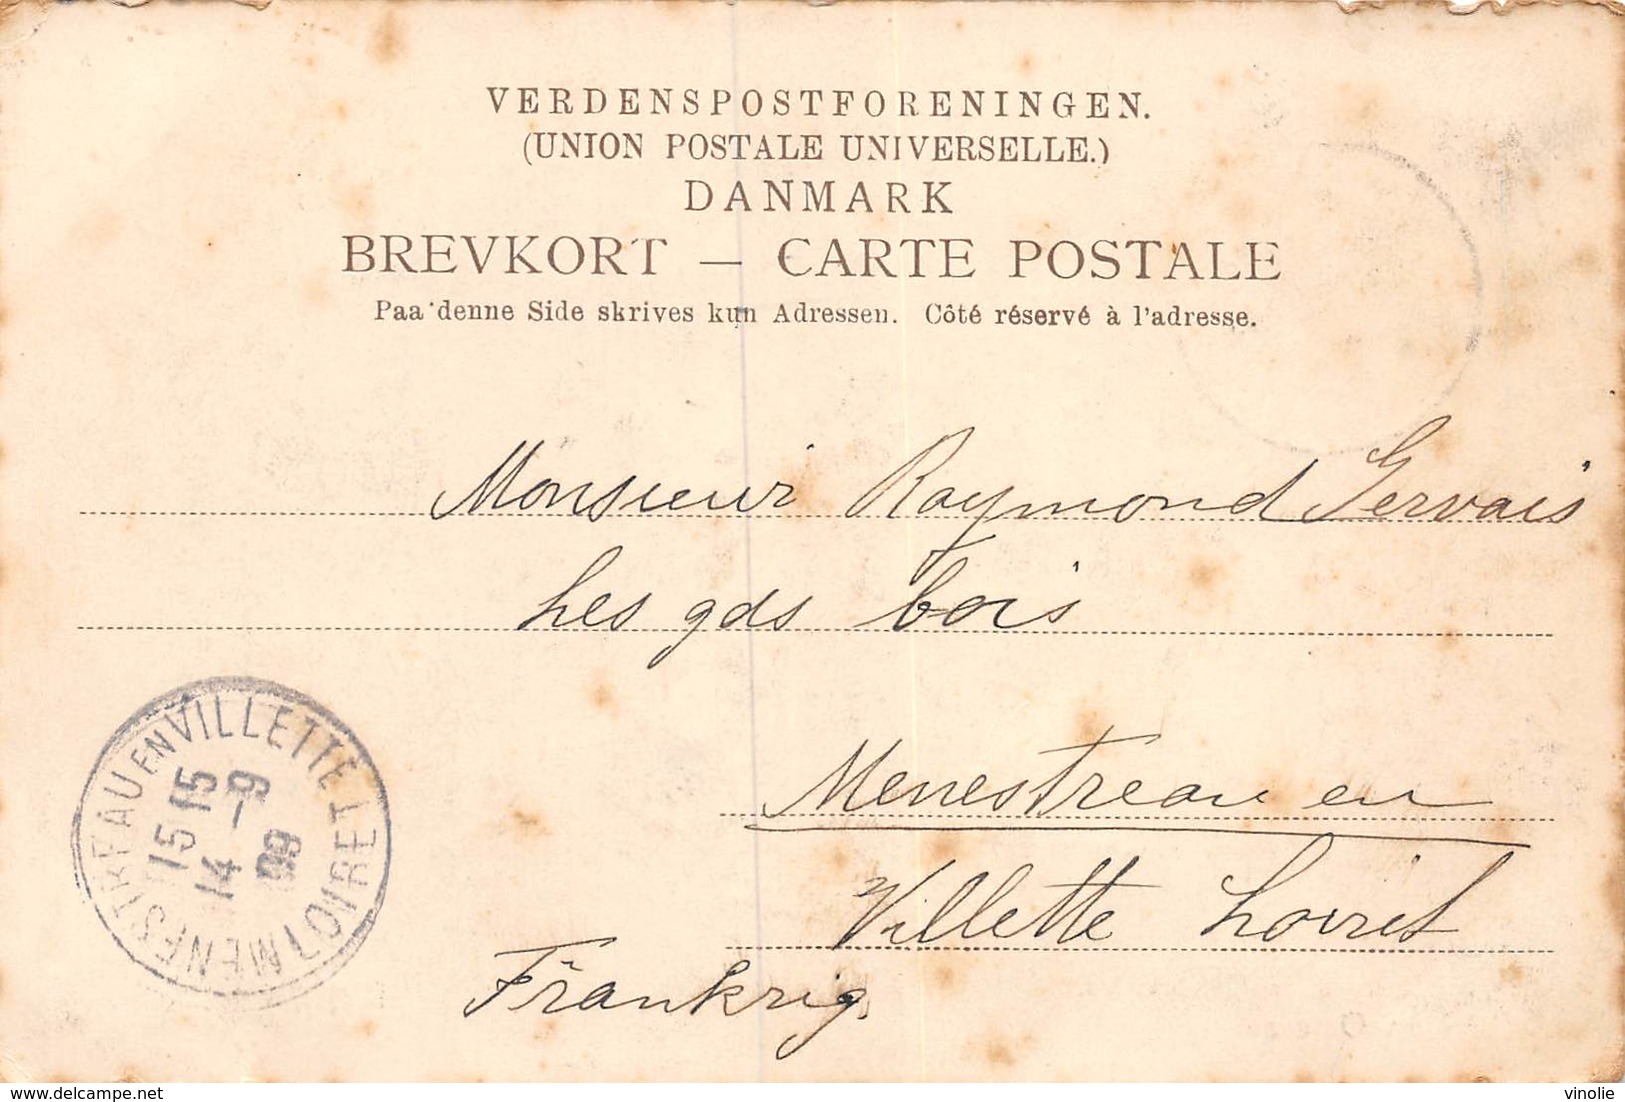 VERDENSPOSTFORENINGEN.
(UNION POSTALE UNIVERSELLE.)
DANMARK
BREVKORT — CARTE POSTALE
Paa denne Side skrives kun Adressen. Côté réservé à l'adresse.
Monsieur Raymond Gervais
Les gds bois
Menestreau en
Villette Loiret
Frankrig.
MENESTREAU EN VILLETTE LOIRET
15 15
14 -9
09
delcampe.net
vinolie